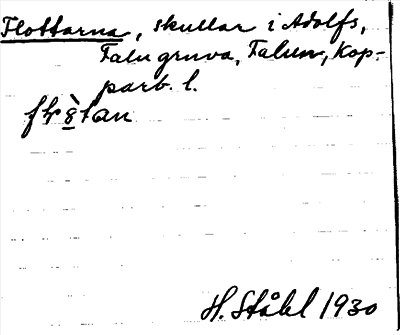 Flottarna, skullar i Adolfs,
Falu gruva, Falun, Kop-
parb. l.
H. Ståhl 1930